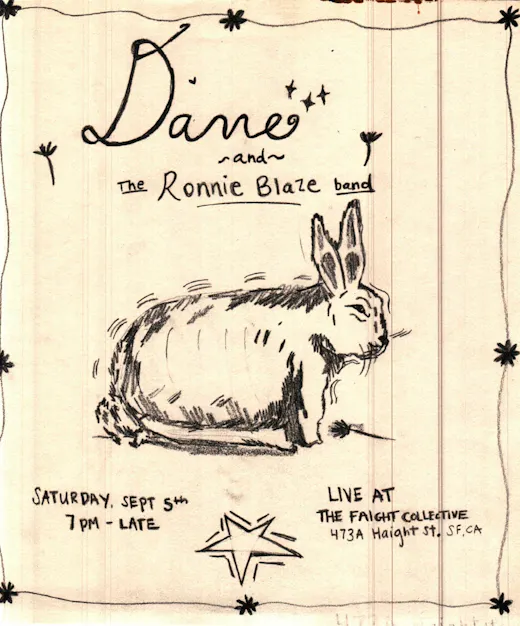 Dane
~and~
The Ronnie Blaze band
SATURDAY, SEPT 5th
7PM - LATE
LIVE AT
THE FAIGHT COLLECTIVE
473A Haight St. SF, CA